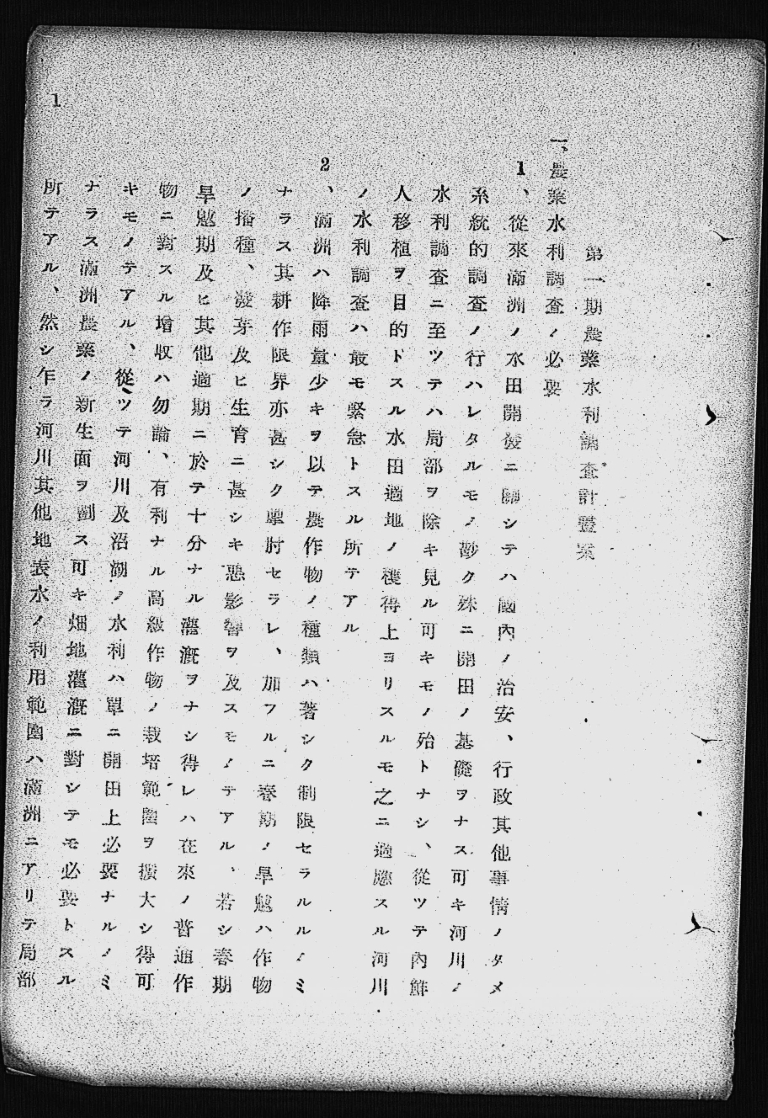 第一期農業水利調査計畫案
一、農業水利調査ノ必要
1、從來滿洲ノ水田開發ニ關シテハ國內ノ治安、行政其他事情ノタメ
系統的調査ノ行ハレタルモノ尠ク殊ニ開田ノ基礎ヲナス可キ河川ノ
水利調査ニ至ツテハ局部ヲ除キ見ル可キモノ殆トナシ、從ツテ內鮮
人移植ヲ目的トスル水田適地ノ獲得上ヨリスルモ之ニ適應スル河川
ノ水利調査ハ最モ緊急トスル所テアル
2、滿洲ハ降雨量少キヲ以テ農作物ノ種類ハ著シク制限セラルルノミ
ナラス其耕作限界亦甚シク掣肘セラレ、加フルニ春期ノ旱魃ハ作物
ノ播種、發芽及ヒ生育ニ甚シキ惡影響ヲ及スモノテアル、若シ春期
旱魃期及ヒ其他適期ニ於テ十分ナル灌漑ヲナシ得レハ在來ノ普通作
物ニ對スル增收ハ勿論、有利ナル高級作物ノ栽培範圍ヲ擴大シ得可
キモノテアル、從ツテ河川及沼湖ノ水利ハ單ニ開田上必要ナルノミ
ナラス滿洲農業ノ新生面ヲ劃ス可キ畑地灌漑ニ對シテモ必要トスル
所テアル、然シ乍ラ河川其他地表水ノ利用範圍ハ滿洲ニアリテ局部
1